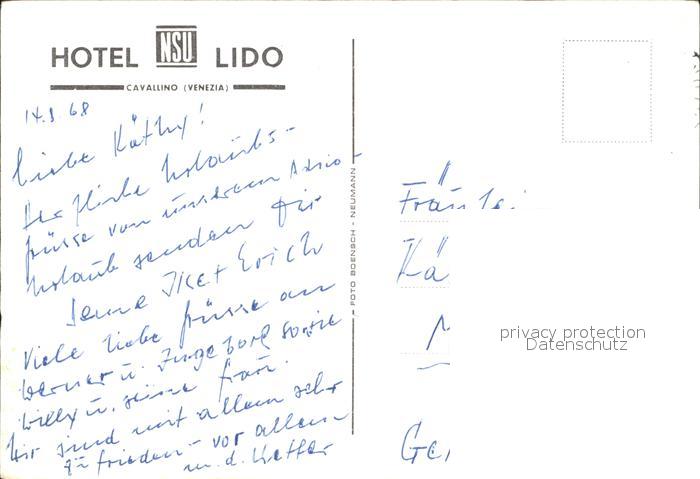 HOTEL NSU LIDO
CAVALLINO (VENEZIA)
14.9.68
Liebe Käthy!
Herzliche Urlaubs-
grüsse von unserem Adria-
Urlaub senden Dir
Erich
Viele liebe Grüsse an
Werner u. Ingeborg sowie
Willy u. seine Frau.
Wir sind mit allem sehr
zufrieden - vor allem
m. d. Wetter
FOTO BOENSCH - NEUMANN
Fräulei
Kä
privacy protection
Datenschutz
Ge